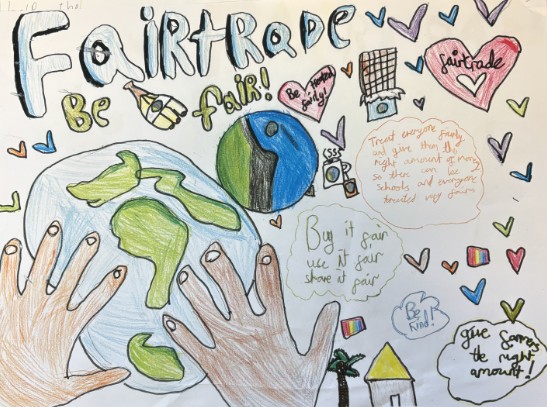 FaiRtRaDe
Be fair!
Be treated
fairly!
fairtrade
Treat everyone fairly
and give them the
right amount of money
so there can be
schools and everyone
treated very fair
Buy it fair
use it fair
share it fair
Be
Kind!
give farmers
the right
amount!